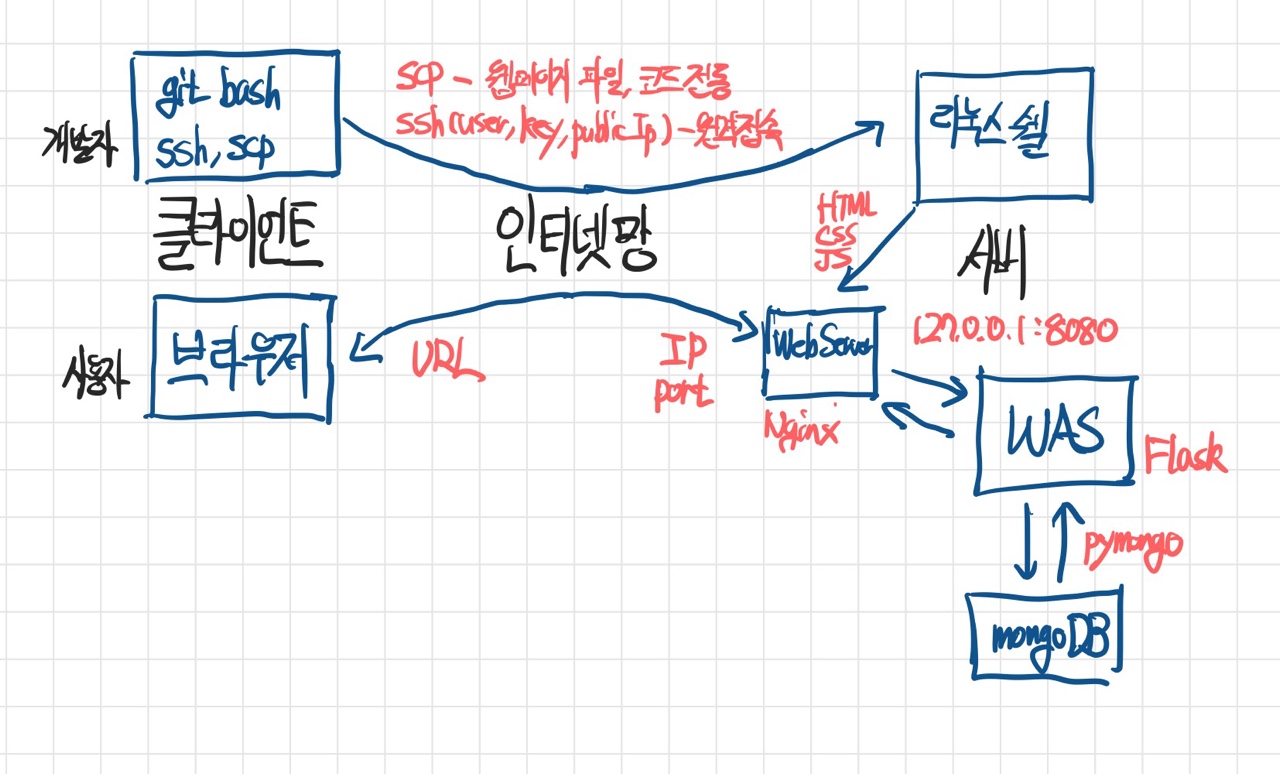 git bash
ssh, scp
개발자
SCP - 웹페이지 파일, 코드 전송
ssh(user, key, public Ip) - 원격접속
리눅스 쉘
클라이언트
인터넷망
HTML
CSS
JS
서버
브라우저
사용자
URL
IP
port
Web Server
Nginx
127.0.0.1:8080
WAS
Flask
pymongo
mongoDB